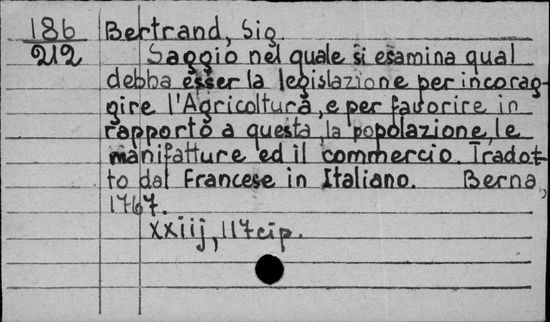 186 Bertrand, Sig.
212 Saggio nel quale si esamina qual
debba esser la legislazione per incorag-
gire l'Agricoltura, e per favorire in
rapporto a questa la popolazione, le
manifatture ed il commercio. Tradot-
to dal Francese in Italiano. Berna,
1767.
xxiij, 117 cip.